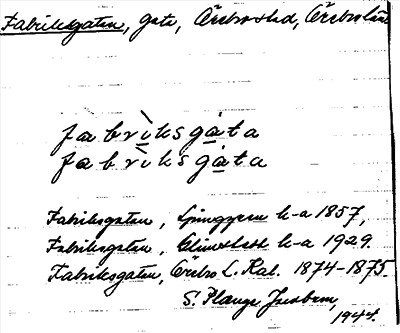 Fabriksgatan, gata, Örebro stad, Örebro län
fàbrìksgàta
fàbrìksgàta
Fabriksgatan, Ljunggren k-a 1857,
Fabriksgatan, k-a 1929.
Fabriksgatan, Örebro L. Kal. 1874-1875.
S. Plange
1944.